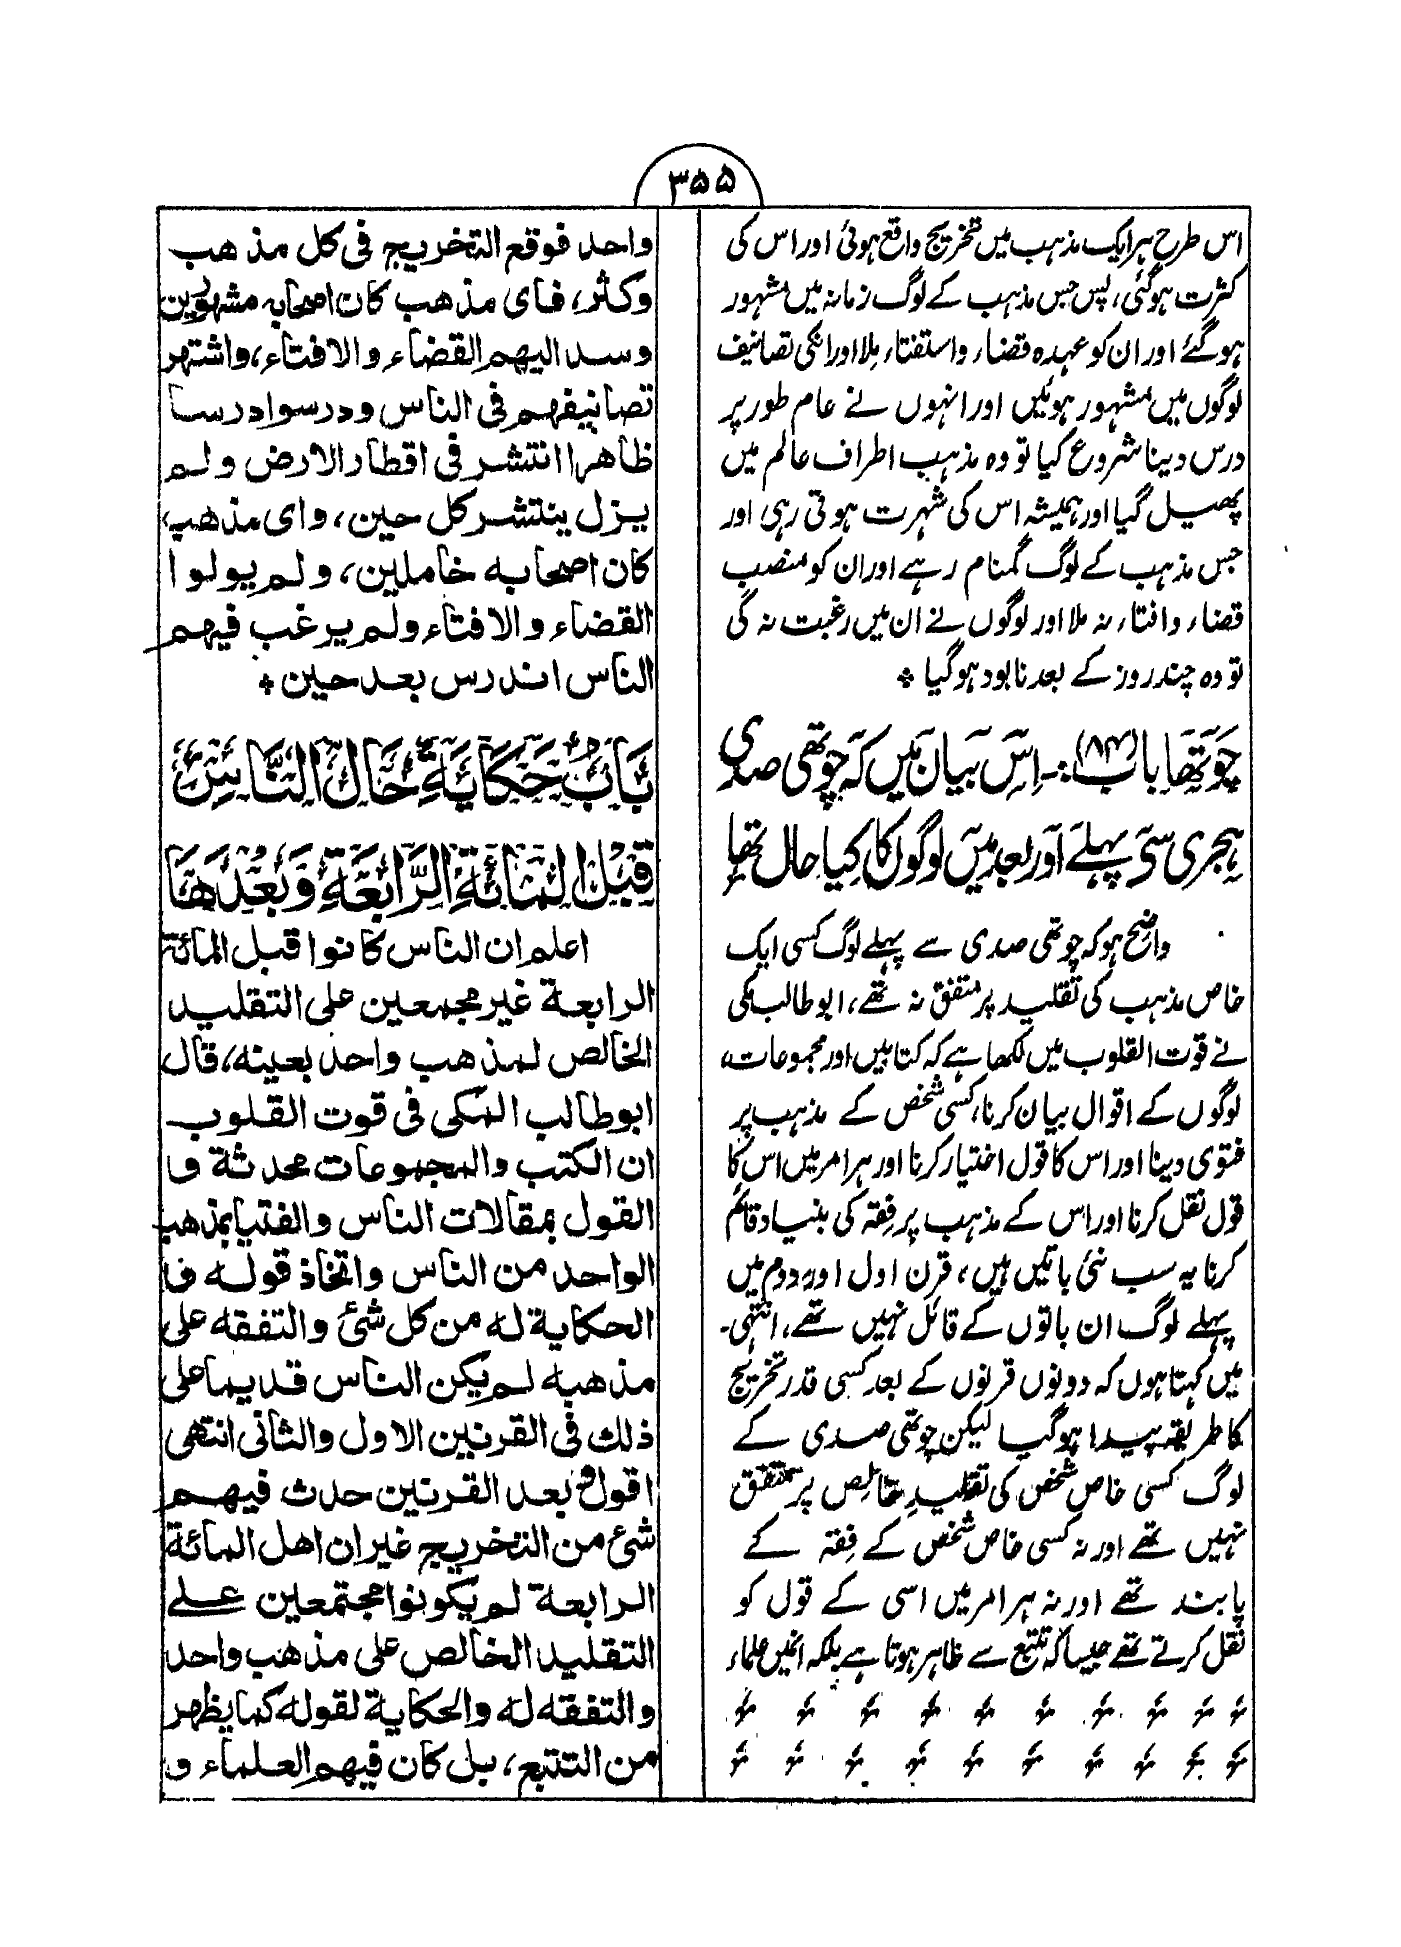 ۳۵۵
اس طرح ہر ایک مذہب میں تخریج واقع ہوئی اور اس کی
کثرت ہوگئی، پس جس مذہب کے لوگ زمانہ میں مشہور
ہوگئے اور ان کو عہدہ قضاء واستفتاء ملا اور انکی تصانیف
لوگوں میں مشہور ہوئیں اور انہوں نے عام طور پر
درس دینا شروع کیا تو وہ مذہب اطراف عالم میں
پھیل گیا اور ہمیشہ اس کی شہرت ہوتی رہی اور
جس مذہب کے لوگ گمنام رہے اور ان کو منصب
قضاء وافتاء نہ ملا اور لوگوں نے ان میں رغبت نہ کی
تو وہ چند روز کے بعد نابود ہوگیا ٭
چوتھا باب (۸۴):- اس بیان میں کہ چوتھی صدی
ہجری سی پہلے اور بعد میں لوگوں کا کیا حال تھا
واضح ہو کہ چوتھی صدی سے پہلے لوگ کسی ایک
خاص مذہب کی تقلید پر متفق نہ تھے، ابو طالب مکی
نے قوت القلوب میں لکھا ہے کہ کتابیں اور مجموعات،
لوگوں کے اقوال بیان کرنا، کسی شخص کے مذہب پر
فتوی دینا اور اس کا قول اختیار کرنا اور ہر امر میں اس کا
قول نقل کرنا اور اس کے مذہب پر فقہ کی بنیاد قائم
کرنا یہ سب نئی باتیں ہیں، قرن اول اور دوم میں
پہلے لوگ ان باتوں کے قائل نہیں تھے، انتہی۔
میں کہتا ہوں کہ دونوں قرنوں کے بعد کسی قدر تخریج
کا طریقہ پیدا ہوگیا لیکن چوتھی صدی کے
لوگ کسی خاص شخص کی تقلید خالص پر متفق
نہیں تھے اور نہ کسی خاص شخص کے فقہ کے
پابند تھے اور نہ ہر امر میں اسی کے قول کو
نقل کرتے تھے جیسا کہ تتبع سے ظاہر ہوتا ہے بلکہ انہیں علماء
واحد فوقع التخريج فى كل مذهب
وكثر، فاى مذهب كان اصحابه مشهورين
وسد اليهم القضاء والافتاء، واشتهر
تصانيفهم فى الناس ودرسوا درسا
ظاهرا انتشر فى اقطار الارض ولم
يزل ينتشر كل حين، واى مذهب
كان اصحابه خاملين، ولم يولوا
القضاء والافتاء ولم يرغب فيهم
الناس اندرس بعد حين ٭
بَابُ حِكَايَةِ حَالِ النَّاسِ
قَبْلَ الْمِائَةِ الرَّابِعَةِ وَبَعْدَهَا
اعلم ان الناس كانوا قبل المائة
الرابعة غير مجمعين على التقليد
الخالص لمذهب واحد بعينه، قال
ابو طالب المكى فى قوت القلوب
ان الكتب والمجموعات محدثة و
القول بمقالات الناس والفتيا بمذهب
الواحد من الناس واتخاذ قوله و
الحكاية له من كل شئ والتفقه على
مذهبه لم يكن الناس قديما على
ذلك فى القرنين الاول والثانى انتهى
اقول وبعد القرنين حدث فيهم
شئ من التخريج غير ان اهل المائة
الرابعة لم يكونوا مجتمعين على
التقليد الخالص على مذهب واحد
والتفقه له والحكاية لقوله كما يظهر
من التتبع، بل كان فيهم العلماء و